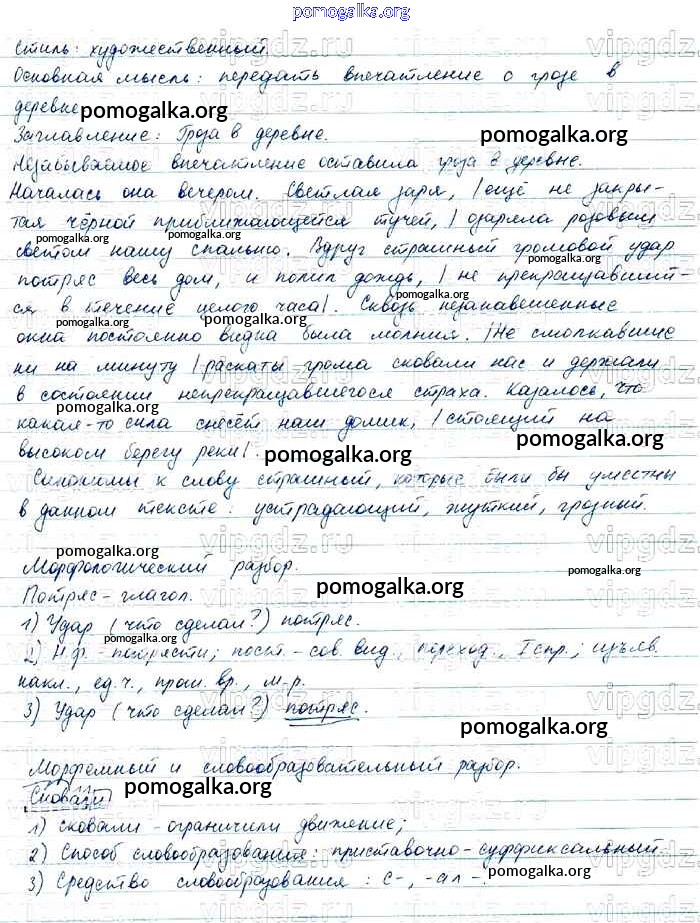 pomogalka.org
Стиль: художественный.
Основная мысль: передать впечатление о грозе в
деревне
pomogalka.org
Заглавление: Гроза в деревне.
pomogalka.org
Незабываемое впечатление оставила гроза в деревне.
Началась она вечером. Светлая заря, |ещё не закры-
тая чёрной приближающейся тучей,| озаряла розовым
pomogalka.org pomogalka.org
светом нашу спальню. Вдруг страшный громовой удар
pomogalka.org
потряс весь дом, и полил дождь, |не прекращавший-
pomogalka.org
ся в течение целого часа|. Сквозь незанавешенные
pomogalka.org pomogalka.org
окна постоянно видна была молния. |Не смолкавшие
ни на минуту| раскаты грома сковали нас и держали
в состоянии непрекращавшегося страха. Казалось, что
какая-то сила снесёт наш домик, |стоящий на
pomogalka.org
высоком берегу реки|.
pomogalka.org pomogalka.org
Синонимы к слову страшный, которые были бы уместны
в данном тексте: устрашающий, жуткий, грозный.
pomogalka.org
Морфологический разбор.
pomogalka.org
Потряс - глагол.
pomogalka.org
1) Удар (что сделал?) потряс.
pomogalka.org
2) Н.ф. - потрясти; пост. - сов. вид., переход., I спр.; изъяв.
накл., ед.ч., прош. вр., м.р.
3) Удар (что сделал?) потряс.
pomogalka.org
Морфемный и словообразовательный разбор.
Сковали
pomogalka.org
1) сковали - ограничили движение;
2) Способ словообразования: приставочно-суффиксальный.
3) Средство словообразования: с-, -ал-.
pomogalka.org
vipgdz.ru